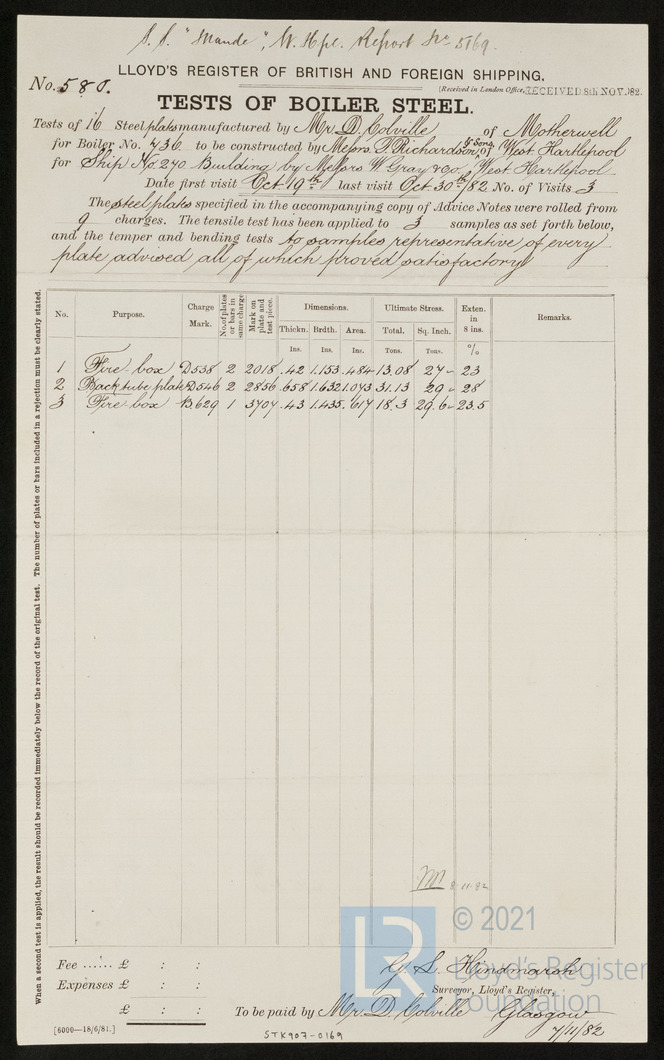 S.S. "Maude", W. Hpl. Report No 5169.
LLOYD'S REGISTER OF BRITISH AND FOREIGN SHIPPING.
No. 580.
(Received in London Office, RECEIVED 8th NOV. 82.
TESTS OF BOILER STEEL.
Tests of 16 Steel plates manufactured by Mr. D. Colville of Motherwell
for Boiler No. 736. to be constructed by Messrs. T. Richardson & Sons, of West Hartlepool
for Ship No. 270 Building by Messrs W. Gray & Co. West Hartlepool.
Date first visit Oct. 19th last visit Oct 30th/82. No. of Visits 3
The steel plates specified in the accompanying copy of Advice Notes were rolled from
9 charges. The tensile test has been applied to 3 samples as set forth below,
and the temper and bending tests to samples representative of every
plate advised all of which proved satisfactory
No. Purpose. Charge Mark. No. of plates or bars in same charge Mark on plate and test piece. Dimensions. Ultimate Stress. Exten. in 8 ins. Remarks.
Thickn. Brdth. Area. Total. Sq. Inch.
Ins. Ins. Ins. Tons. Tons. %
1 Fire box D538 2 2018 .42 1.153 .484 13.08 27 - 23
2 Back tube plate D546 2 2856 .658 1.632 1.073 31.13 29 - 28
3 Fire box B629 1 3707 .43 1.435 .617 18.3 29.6 - 23.5
When a second test is applied, the result should be recorded immediately below the record of the original test. The number of plates or bars included in a rejection must be clearly stated.
8.11.82
© 2021
LR
Lloyd's Register
Foundation
Fee ...... £ : :
Expenses £ : :
£ : :
G. S. Hindmarsh
Surveyor, Lloyd's Register,
To be paid by Mr. D. Colville Glasgow
7/11/82
[6000—18/6/81.]
STK907-0169